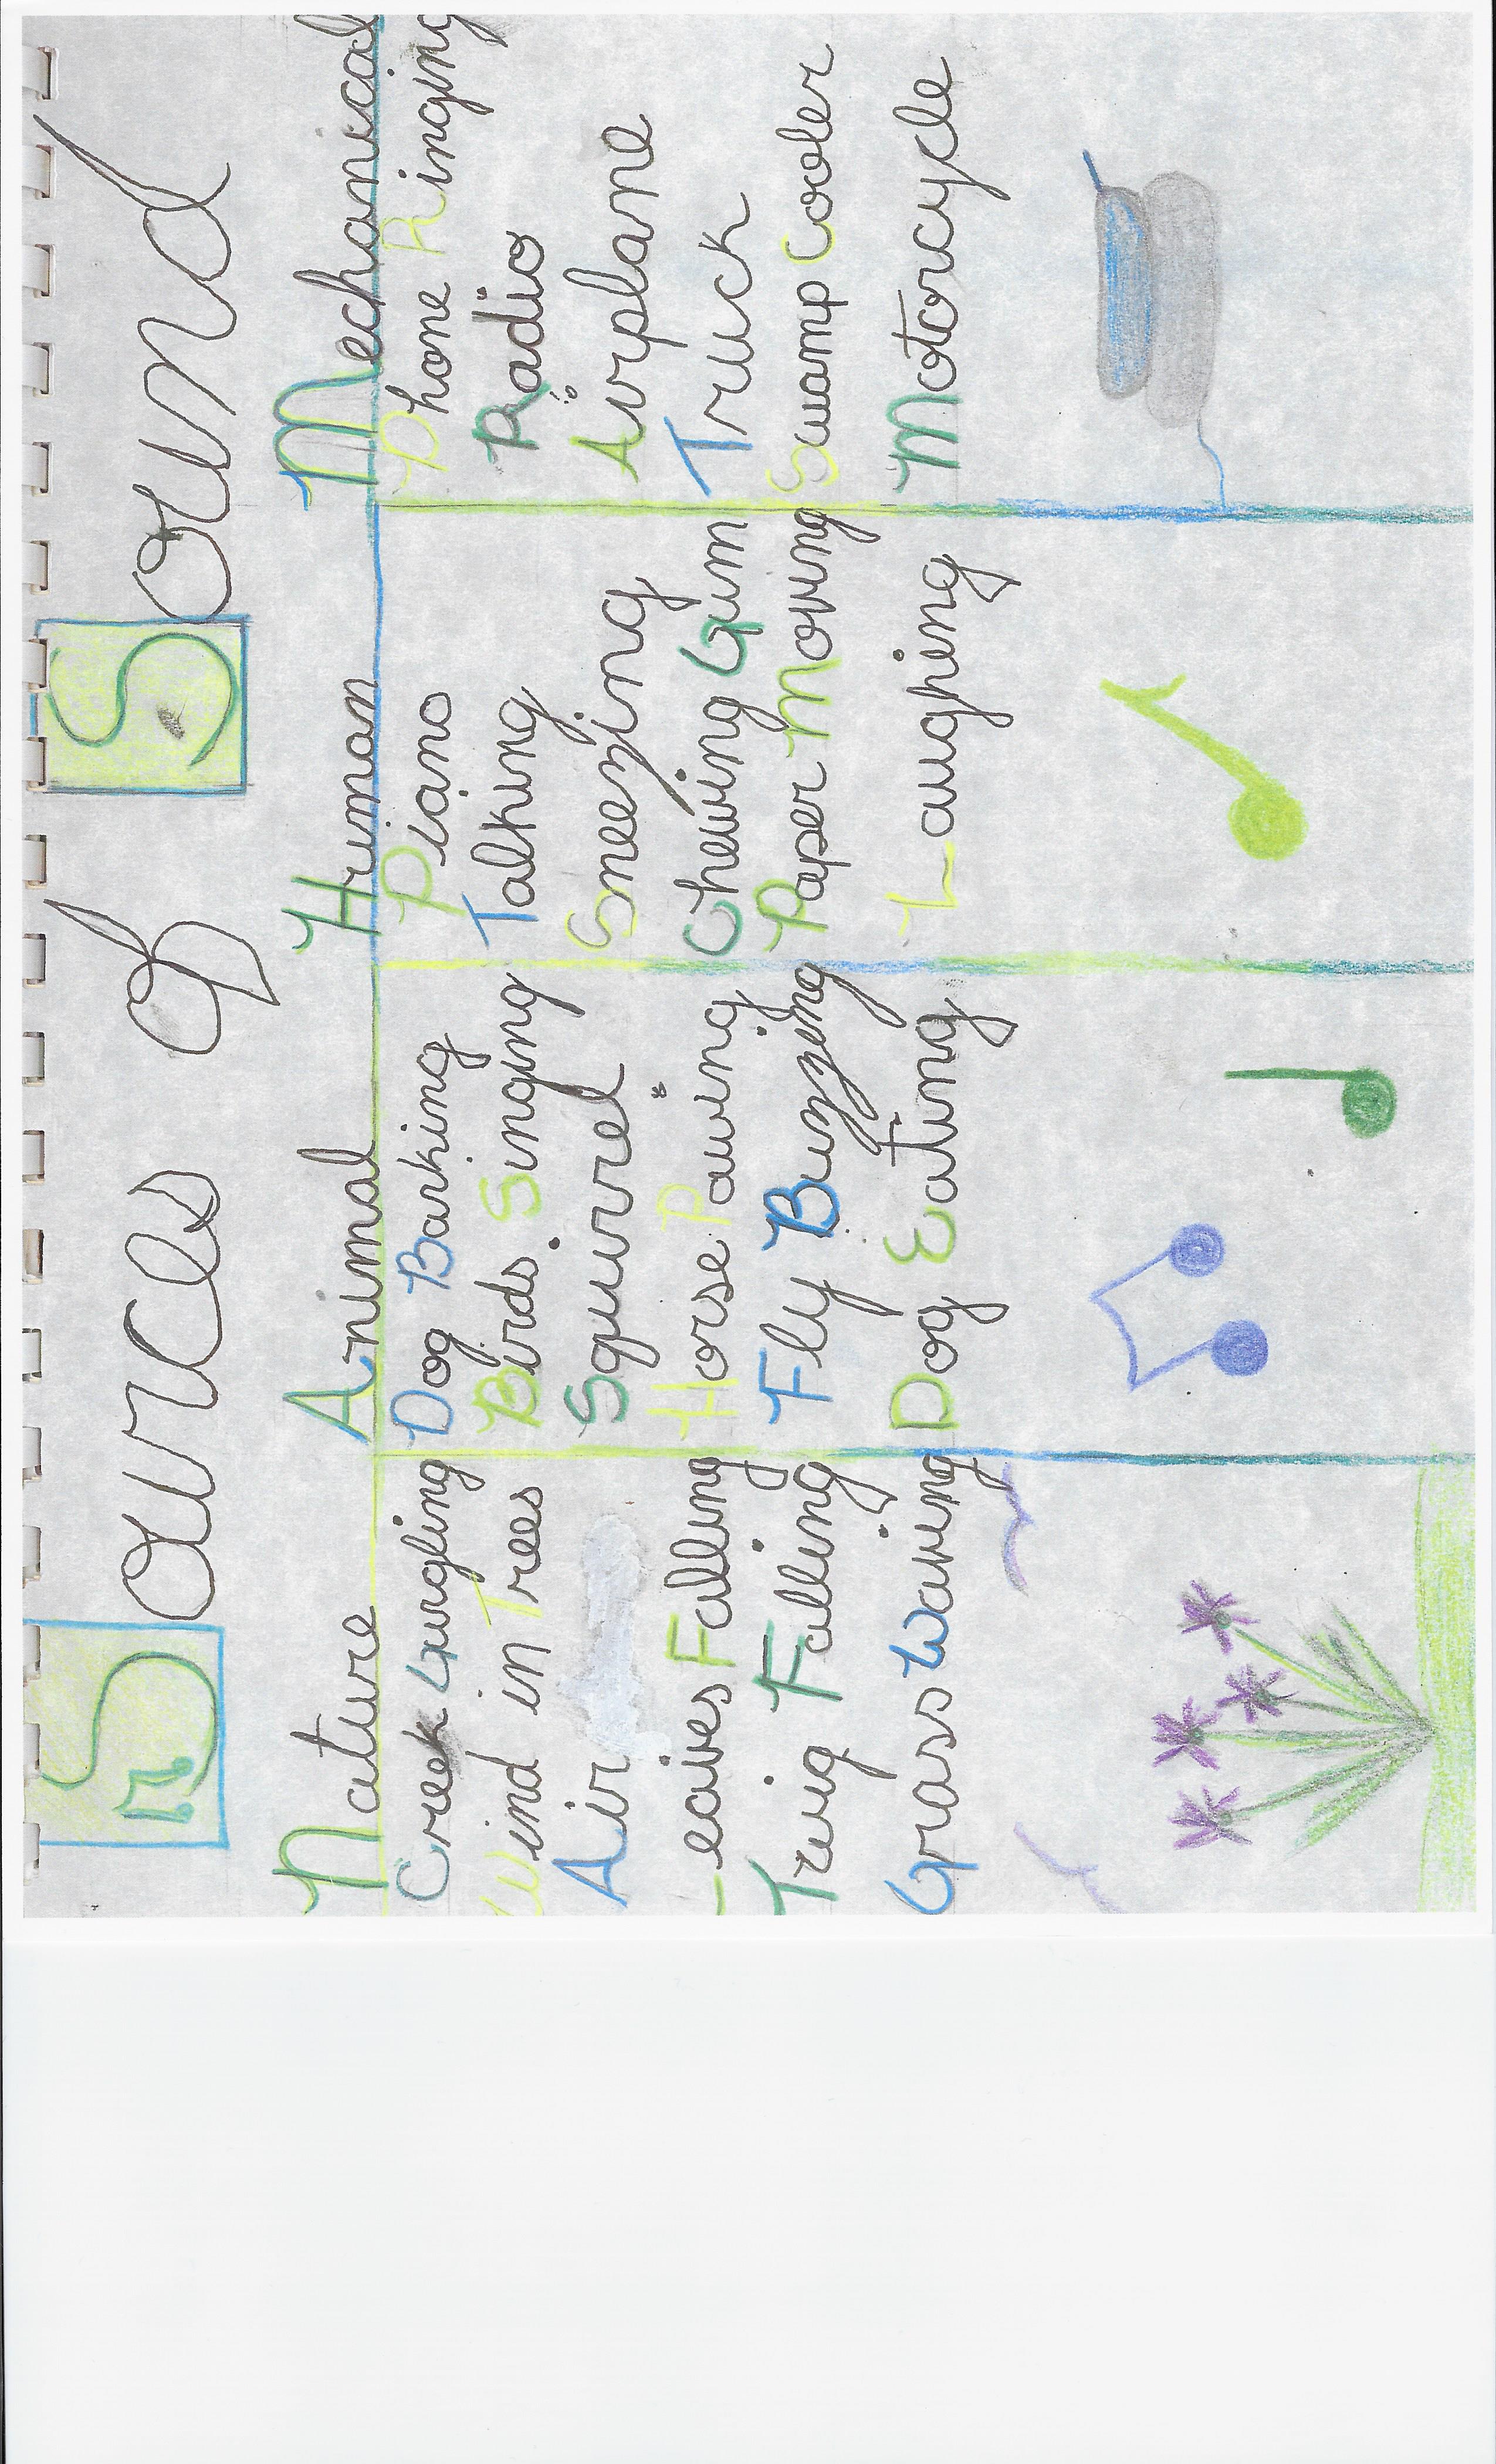 Sources of Sound
Nature
Creek Gurgling
Wind in Trees
Air
Leaives Falling
Twig Falling
Grass Waving
Animal
Dog Barking
Birds Singing
Squirrel
Horse Pawing
Fly Buzzing
Dog Eating
Human
Piano
Talking
Sneezing
Chewing Gum
Paper Moving
Laughing
Mechanical
Phone Ringing
Radio
Airplane
Truck
Swamp Cooler
Motorcycle